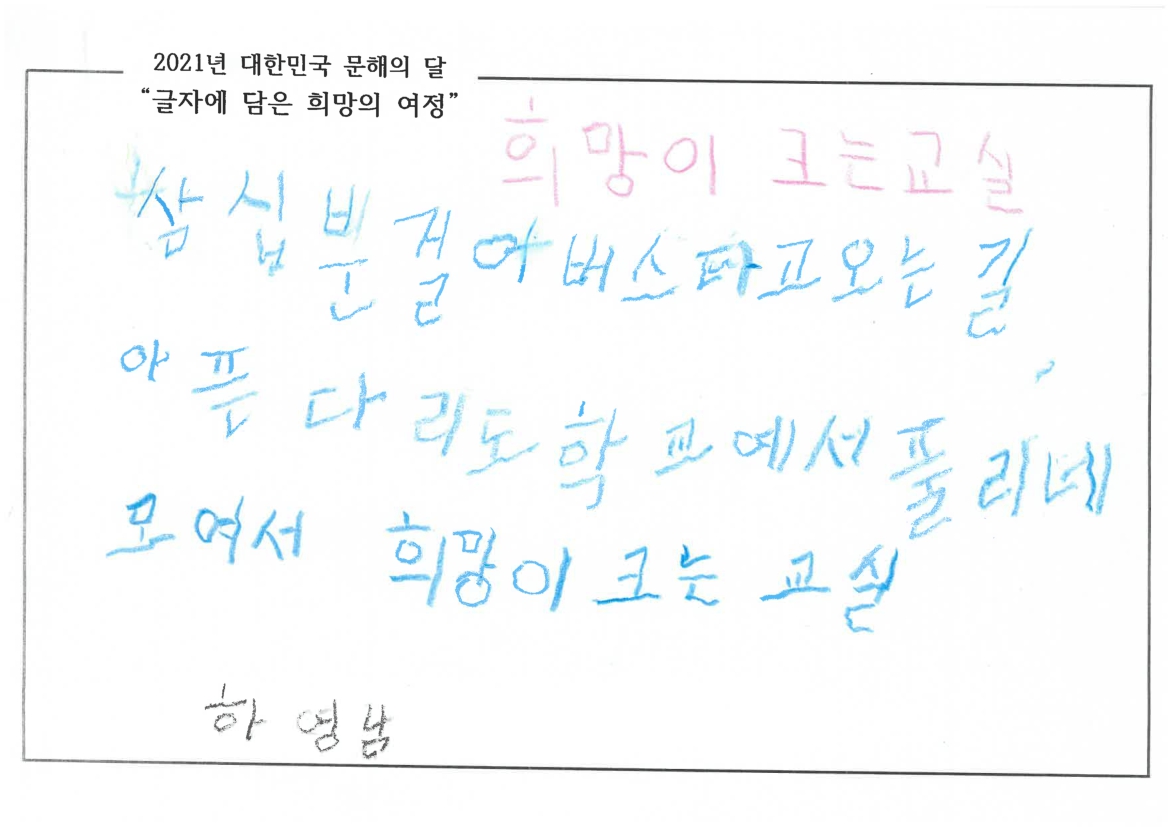 2021년 대한민국 문해의 달
“글자에 담은 희망의 여정”
희망이 크는교실
삼십분걸어버스타고오는길
아픈다리도학교에서풀리네
모여서 희망이 크는 교실
하영남